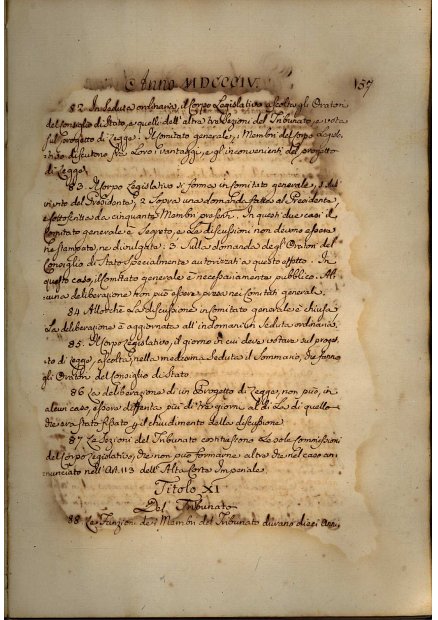 Anno MDCCCIV.
157
82 In Seduta ordinaria, il Corpo Legislativo ascolta gli Oratori
del Consiglio di Stato, e quelli dell'altra tre Sezioni del Tribunato, e vota
sul progetto di Legge. In Comitato generale, i Membri del Corpo Legisla-
tivo discutono fra Loro i vantaggi, e gl'inconvenienti del progetto
di Legge.
83 Il Corpo Legislativo si forma in Comitato generale, 1 dall'
invito del Presidente, 2 Sopra una domanda fatta al Presidente,
e sottoscritta da cinquanta Membri presenti. In questi due casi il
Comitato generale è Segreto, e Le discussioni non devono essere
ne stampate, ne divulgate: 3 Sulla domanda degl'Oratori del
Consiglio di Stato specialmente autorizzati a questo effetto. In
questo caso, il Comitato generale è necessariamente pubblico. Al-
cuna deliberazione non può essere presa nei Comitati generali.
84 Allorchè La discussione in Comitato generale è chiusa
La deliberazione è aggiornata all'indomani in Seduta ordinaria.
85 Il Corpo Legislativo, il giorno in cui deve votare sul proget-
to di Legge, ascolta nella medesima Seduta il Sommario, che fanno
gli Oratori del Consiglio di Stato
86 La deliberazione di un Progetto di Legge, non può, in
alcun caso, essere differita più di tre giorni al di La di quello
che era stato fissato pel chiudimento della discussione.
87 Le Sezioni del Tribunato costituiscono Le sole Commissioni
del Corpo Legislativo, che non può formarne altre che nel caso an-
nunciato nell'Art. 113 dell'Alta Corte Imperiale.
Titolo XI
Del Tribunato
88 Le Funzioni de i Membri del Tribunato durano dieci anni,